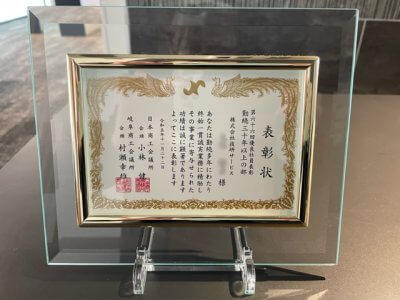 表彰状
第六十六回優良社員表彰
勤続三十年以上の部
株式会社技研サービス
様
あなたは勤続多年にわたり
終始一貫誠実業務に精励し
その事業に寄与せられた
功績は誠に顕著であります
よってここに表彰します
令和五年十一月二十二日
日本商工会議所
会頭 小林 健
岐阜商工会議所
会頭 村瀬幸雄